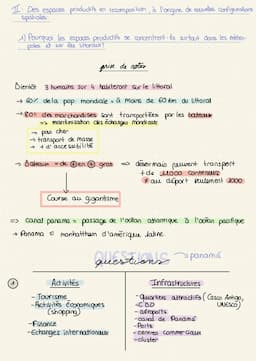 II. Des espaces productifs en recomposition, à l'origine de nouvelles configurations spatiales.
1) Pourquoi les espaces productifs se concentrent-ils surtout dans les métropoles et sur les littoraux?
prise de notes
Bientôt 3 humains sur 4 habiteront sur le littoral
→ 60% de la pop mondiale = à moins de 60 km du littoral
→ 80% des marchandises sont transportées par les bateaux
⇒ maritimisation des échanges mondiaux
→ peu cher
→ transport de masse
→ + d'accessibilité
→ Bateaux = de ⊕ en ⊕ gros ⇒ désormais peuvent transport
+ de containers
≠ au départ seulement
Course au gigantisme
⇒ Canal panama = passage de l'océan atlantique à l'océan pacifique
→ Panama = manhattan d'amérique latine
QUESTIONS → panama
questions
① Activités
- Tourisme
- Activités économiques
(shopping)
- Finance
- Echanges internationaux
Infrastructures
- Quartiers attractifs (Casco Antigo, UNESCO)
- CBD
- aéroports
- canal de Panama
- Ports
- centres commerciaux
- cluster